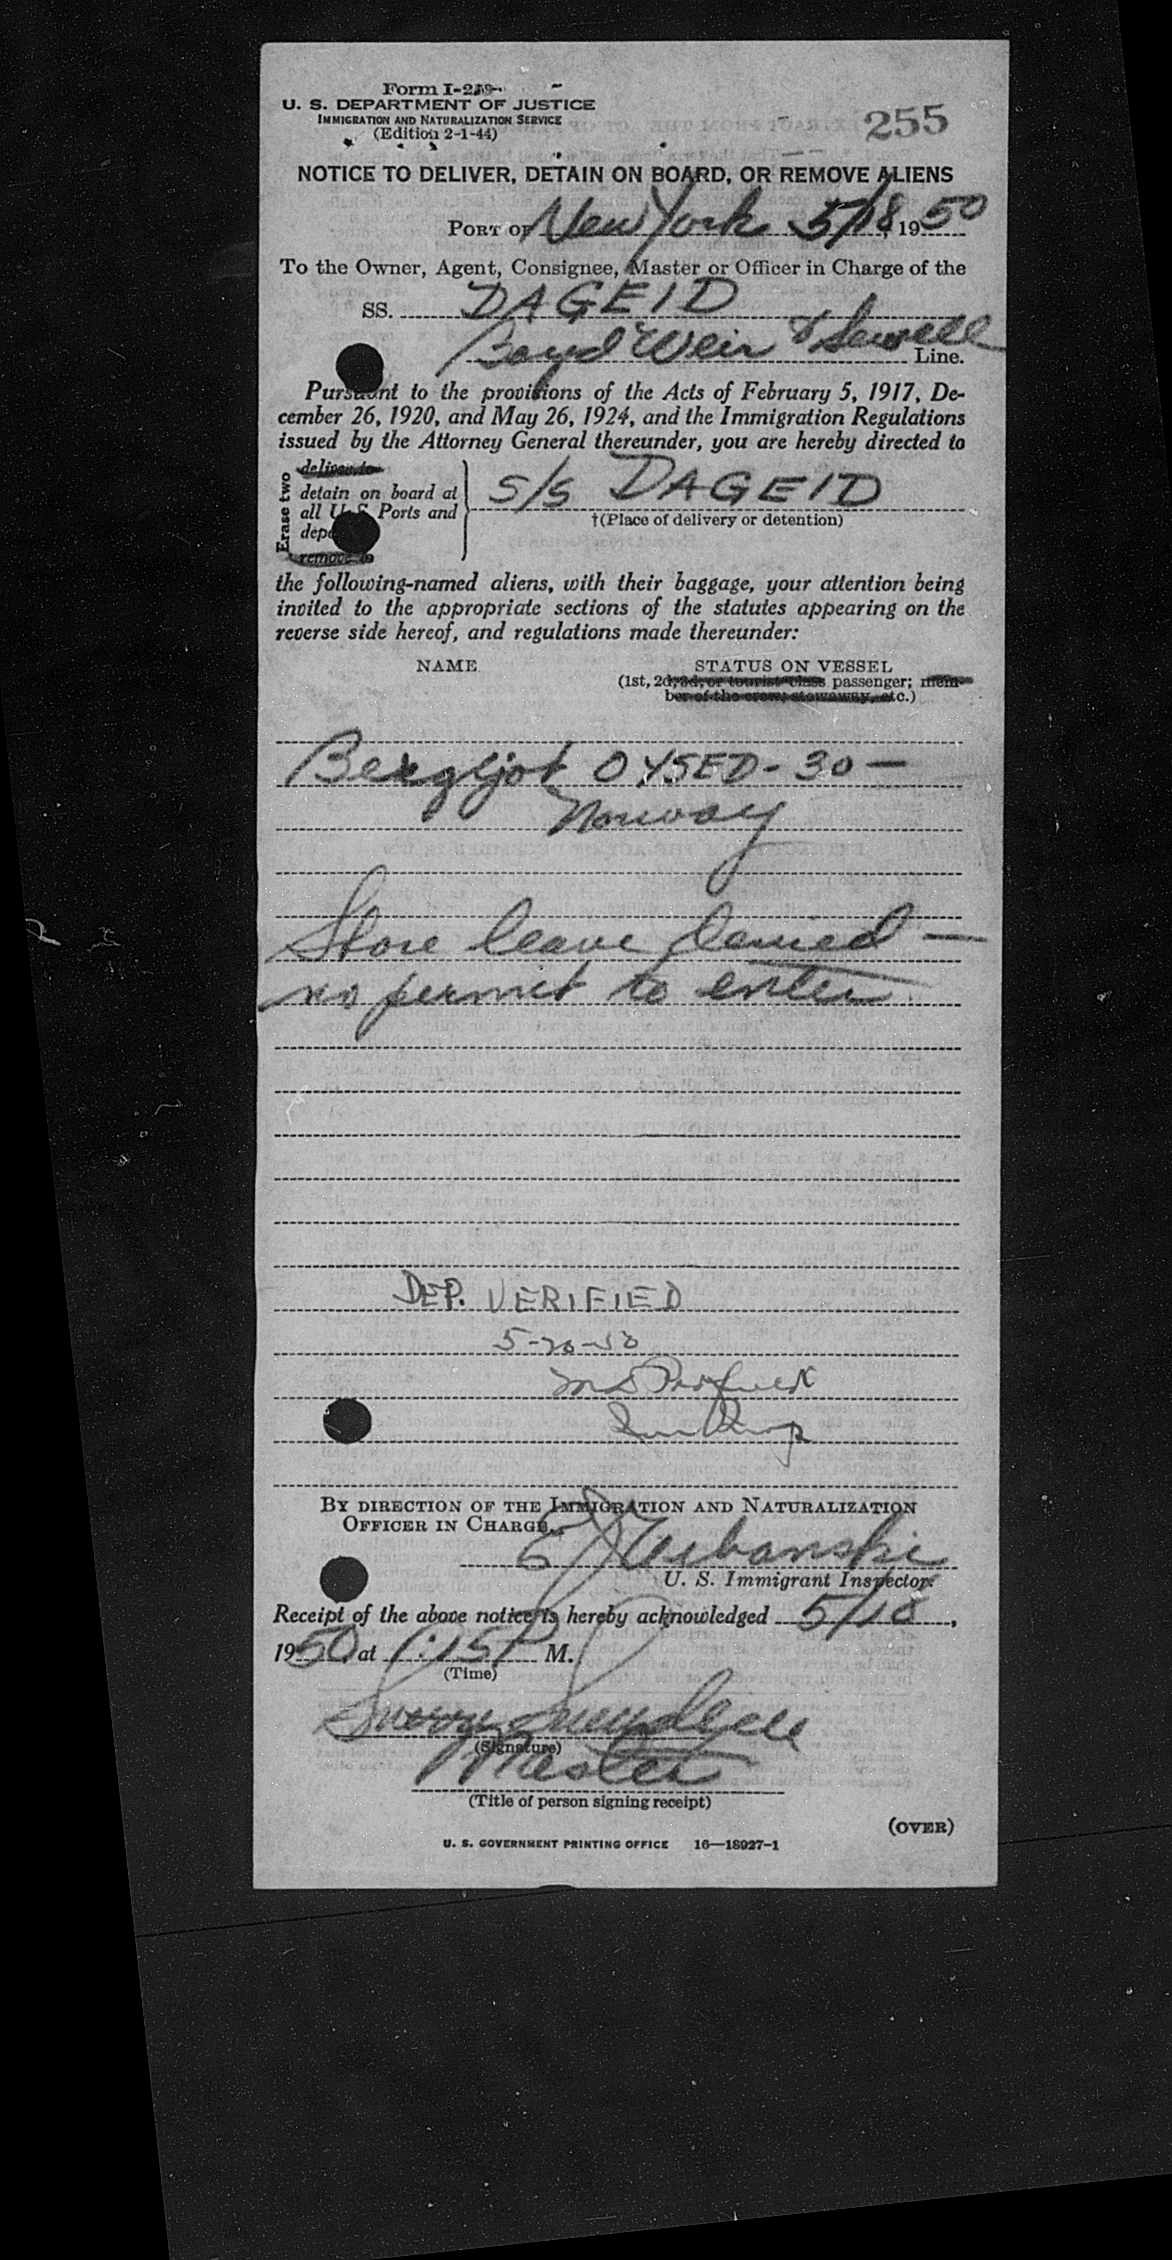 Form I-259
U. S. DEPARTMENT OF JUSTICE
IMMIGRATION AND NATURALIZATION SERVICE
(Edition 2-1-44)
255
NOTICE TO DELIVER, DETAIN ON BOARD, OR REMOVE ALIENS
PORT OF New York 5/18, 1950
To the Owner, Agent, Consignee, Master or Officer in Charge of the
SS. DAGEID
Boyd Weir & Sewell Line.
Pursuant to the provisions of the Acts of February 5, 1917, De-
cember 26, 1920, and May 26, 1924, and the Immigration Regulations
issued by the Attorney General thereunder, you are hereby directed to
Erase two
deliver to
detain on board at
all U. S. Ports and
deport
remove to
S/S DAGEID
†(Place of delivery or detention)
the following-named aliens, with their baggage, your attention being
invited to the appropriate sections of the statutes appearing on the
reverse side hereof, and regulations made thereunder:
NAME
STATUS ON VESSEL
(1st, 2d, 3d, or tourist class passenger; mem-
ber of the crew, stowaway, etc.)
Bergljot OYSED - 30 —
Norway
Shore leave denied —
no permit to enter
DEP. VERIFIED
5-20-50
BY DIRECTION OF THE IMMIGRATION AND NATURALIZATION
OFFICER IN CHARGE.
E J Urbanski
U. S. Immigrant Inspector.
Receipt of the above notice is hereby acknowledged 5/18,
1950 at 1:15 P M.
(Time)
(Signature)
Master
(Title of person signing receipt)
(OVER)
U. S. GOVERNMENT PRINTING OFFICE 16—18927-1